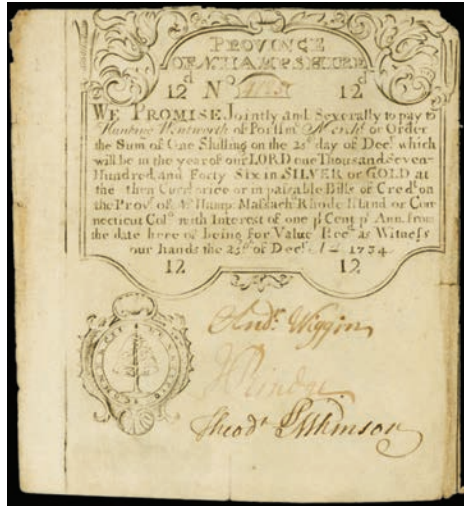 PROVINCE
OF N HAMPSHIRE
12d No 12d
WE PROMISE Jointly and Severally to pay to
Hunking Wentworth of Portsmo Mercht or Order
the Sum of One Shilling on the 25th day of Decr which
will be in the year of our LORD one Thousand Seven-
Hundred and Forty Six in SILVER or GOLD at
the then Curt price or in passable Bills of Credt on
the Prove of N: Hamp: Massachts Rhode Island or Con-
necticut Colo with Interest of one pr Cent pr Ann. from
the date here of being for Value Recd as Witness
our hands the 25th of Decr 1734
12 12
Andr Wiggin
J Rindge
Theodr Atkinson